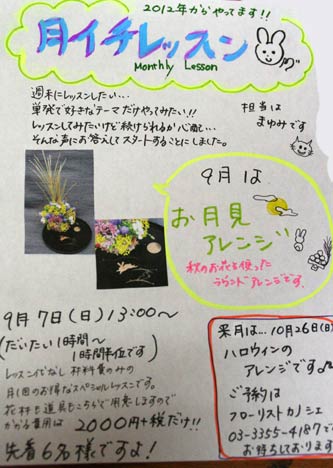 2012年からやってます!!
月イチレッスン
Monthly Lesson
週末にレッスンしたい…
単発で好きなテーマだけやってみたい!!
レッスンしてみたいけど続けられるか心配…
そんな声にお答えしてスタートすることにしました。
担当は
まゆみです
9月は
お月見
アレンジ
秋のお花を使った
ラウンドアレンジです。
9月7日(日)13:00~
(だいたい1時間~
1時間半位です)
レッスン代なし 材料費のみの
月1回のお得なスペシャルレッスンです。
花材も道具もこちらで用意しますので
かかる費用は2000円+税だけ!!
先着6名様ですよ!
来月は…10月26日(日)
ハロウィンの
アレンジです。
ご予約は
フローリストカノシェ
03-3355-4187で
お待ちしております